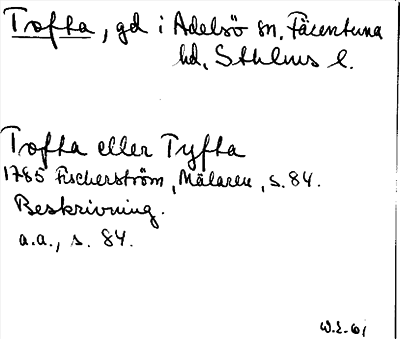 Tofta, gd i Adelsö sn, Färentuna
hd, Sthlms l.
Tofta eller Tyfta
1785 Fischerström, Mälaren, s. 84.
Beskrivning.
a.a., s. 84.
W.E. 61